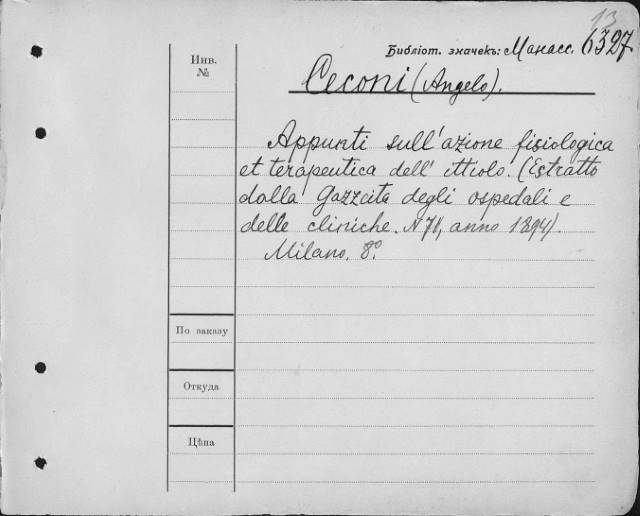 13
Библіот. значекъ: Манасс. 6327
Инв.
№
Ceconi (Angelo).
Appunti sull'azione fisiologica
et terapeutica dell' ittiolo. (Estratto
dalla Gazzeita degli ospedali e
delle cliniche. N 71, anno 1894).
Milano. 8º.
По заказу
Откуда
Цѣна